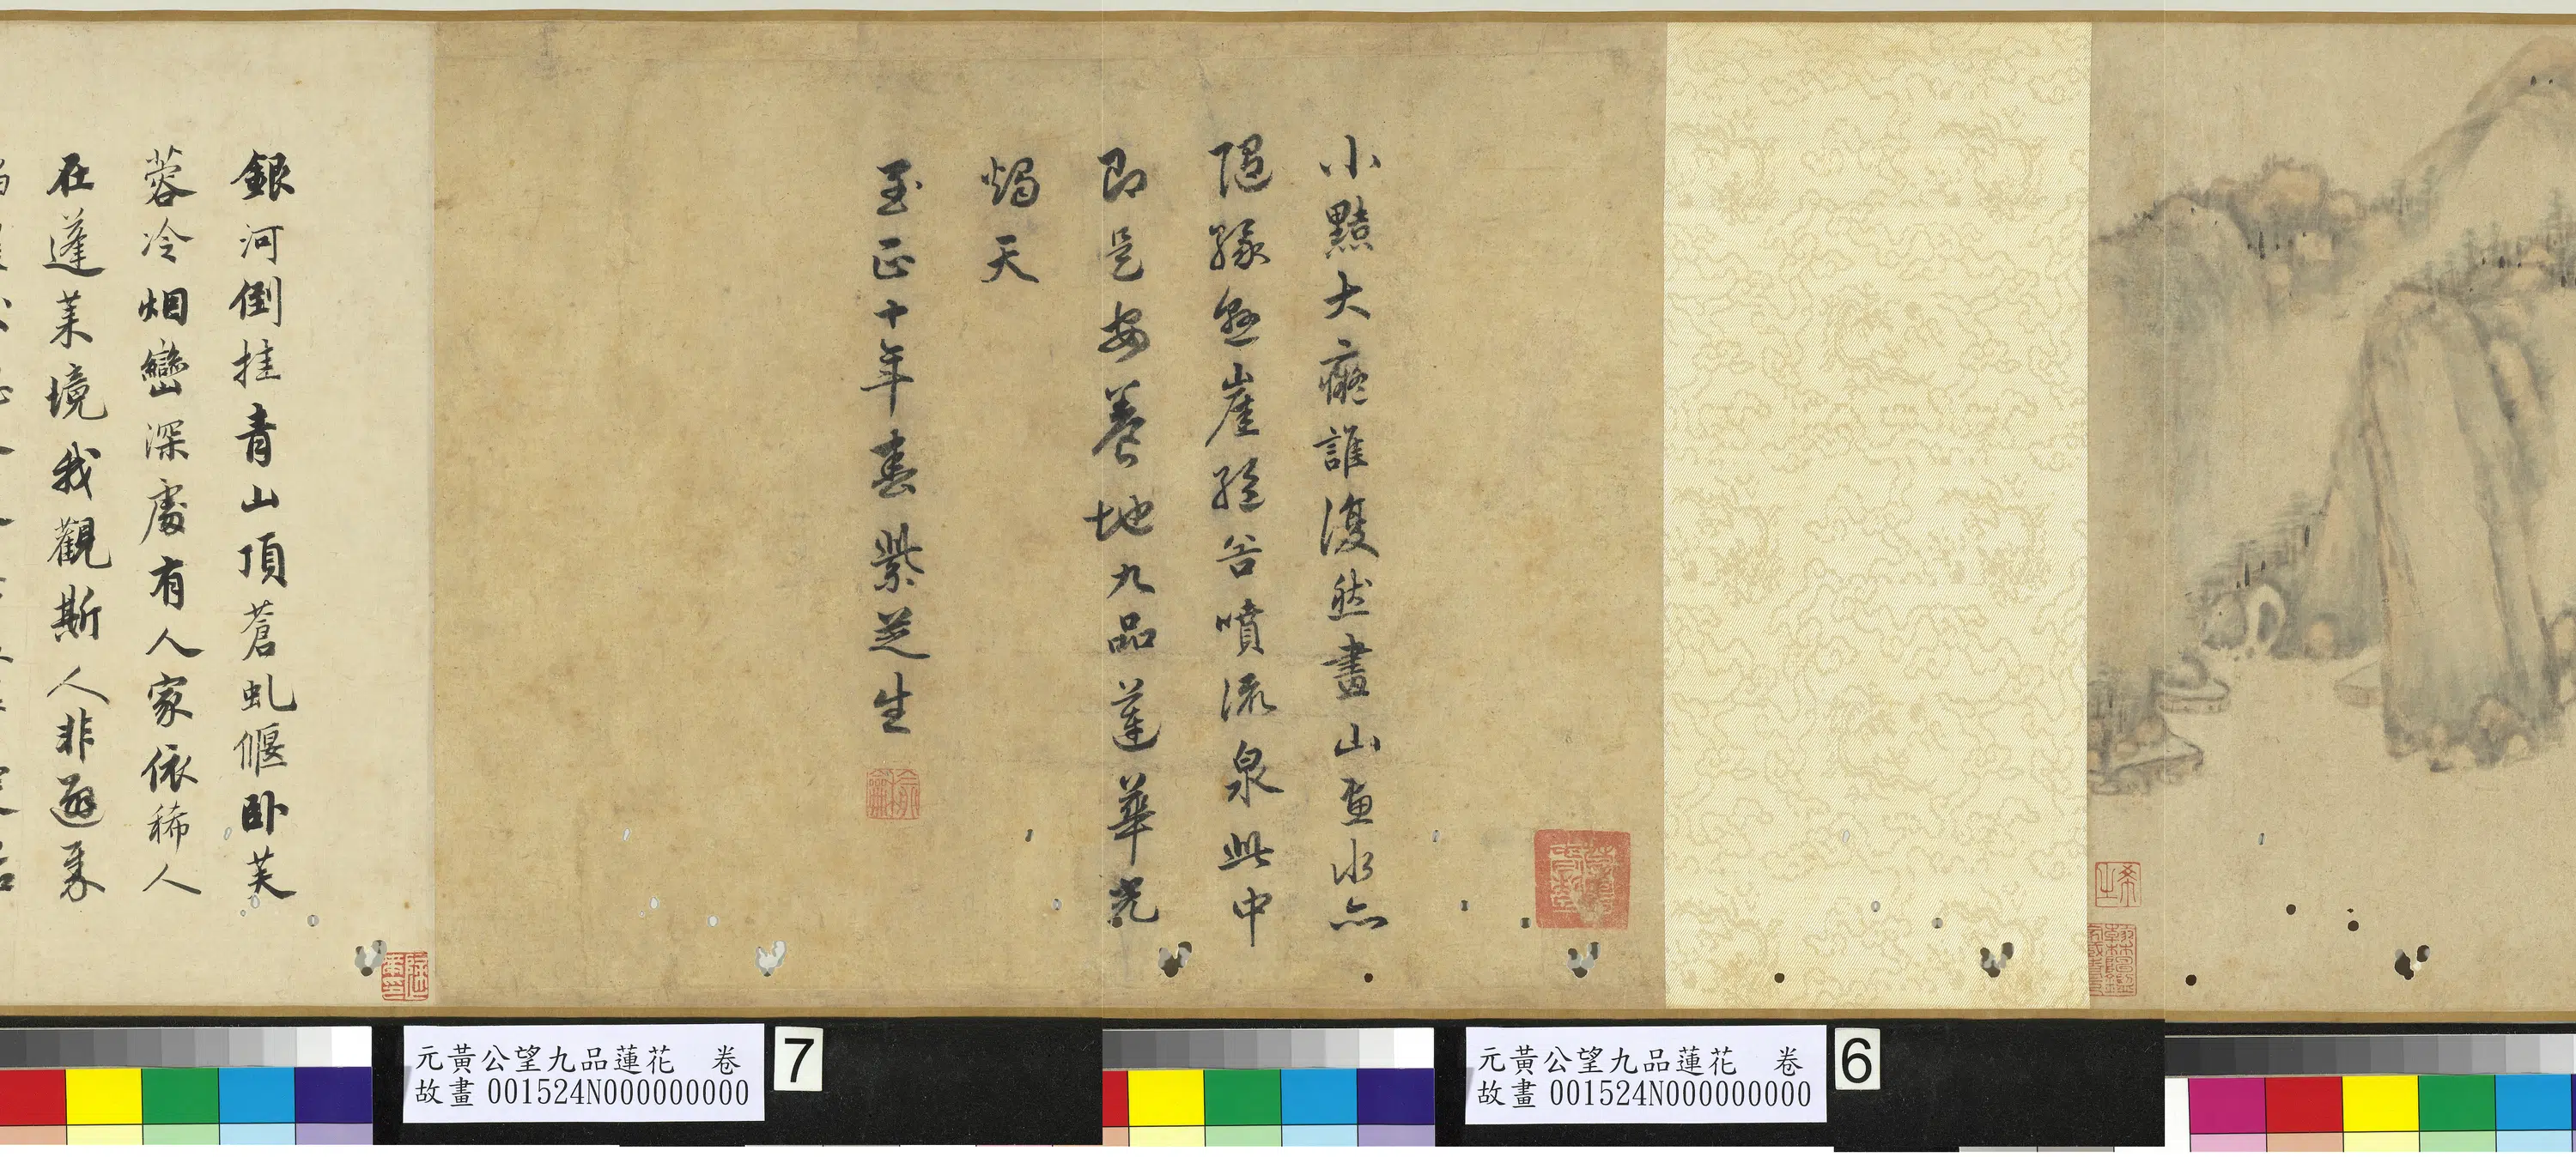 小黠大癡誰復然畫山畫水亦
隨緣懸崖絕谷噴流泉此中
即是安養地九品蓮華光
燭天
至正十年春紫芝生
銀河倒挂青山頂蒼虬偃臥芙
蓉冷烟巒深處有人家依稀人
在蓬萊境我觀斯人非遯
元黃公望九品蓮花 卷
故畫 001524N000000000
7
元黃公望九品蓮花 卷
故畫 001524N000000000
6